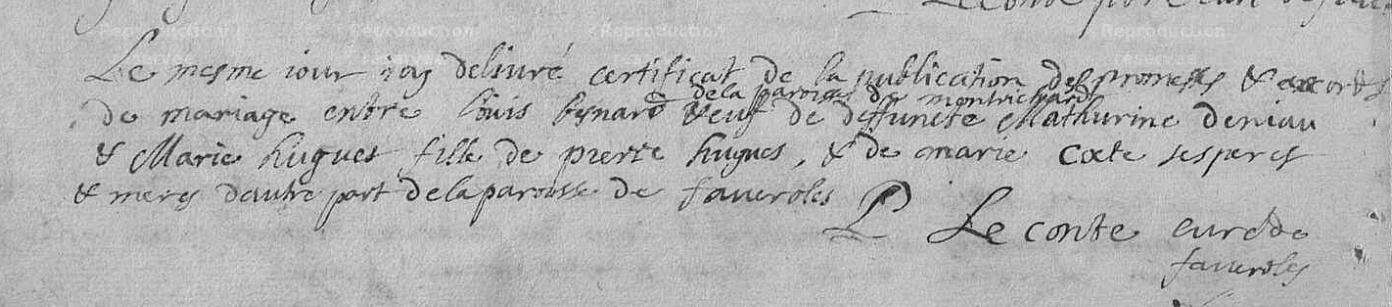 Le mesme iour iay deliuré certificat de la publication des promesses & accords
de la paroisse de montrichard
de mariage entre louis besnard veuf de deffuncte Mathurine deniau
& Marie hugues fille de pierre hugues, & de marie coete ses peres
& meres dautre part de la paroisse de faueroles
P Le conte curé de
faueroles